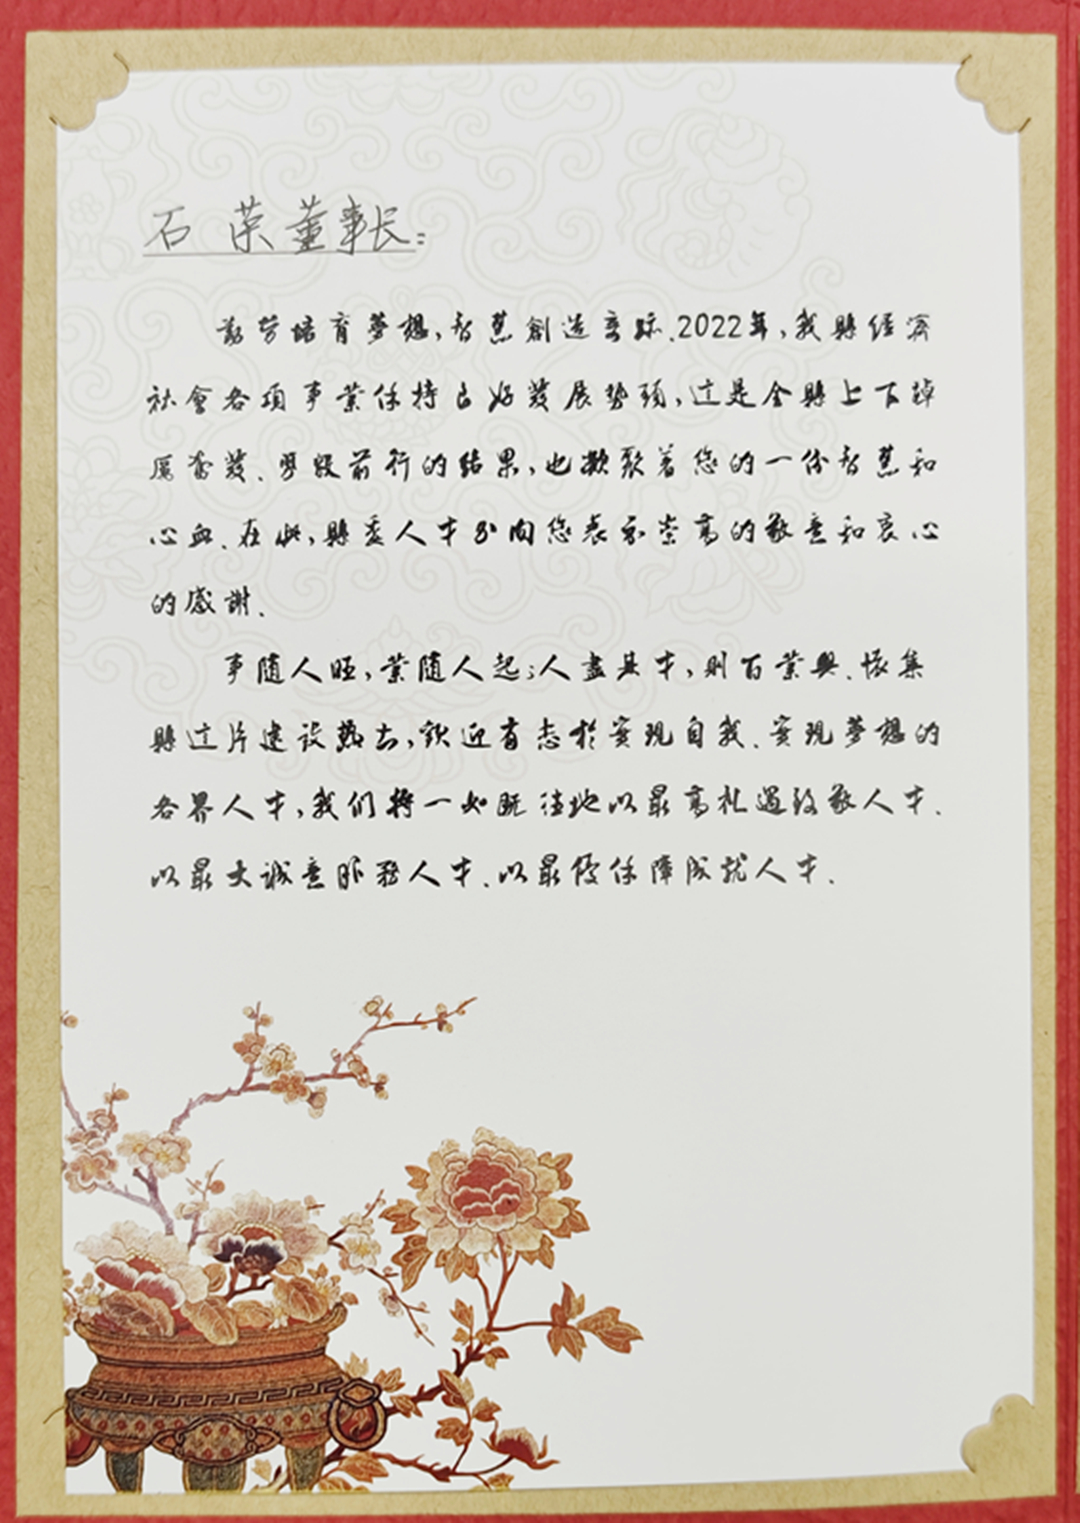 石 荣董事长:
勤劳培育夢想,智慧創造實际.2022年,我縣经济
社會各項事業保持良好發展势頭,这是全縣上下踔
厲奮發、勇毅前行的结果,也凝聚着您的一份智慧和
心血.在此,縣委人才办向您表示崇高的敬意和衷心
的感謝.
事随人旺,業随人起;人盡其才,则百業興.懷集
縣这片建设熱土,歡迎有志於實现自我、實现夢想的
各界人才,我们将一如既往地以最高礼遇致敬人才.
以最大诚意服務人才.以最優保障成就人才.